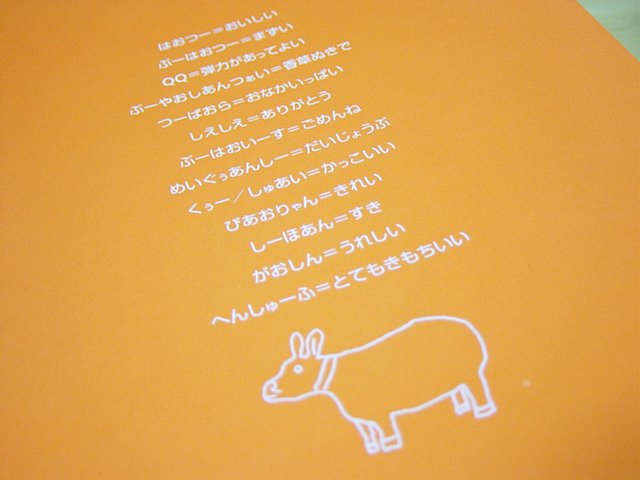 はおつー＝おいしい
ぶーはおつー＝まずい
QQ＝弾力があってよい
ぶーやおしあんつぁい＝香草ぬきで
つーばおら＝おなかいっぱい
しえしえ＝ありがとう
ぶーはおいーす＝ごめんね
めいぐぅあんしー＝だいじょうぶ
くぅー／しゅあい＝かっこいい
ぴあおりゃん＝きれい
しーほあん＝すき
がおしん＝うれしい
へんしゅーふ＝とてもきもちいい